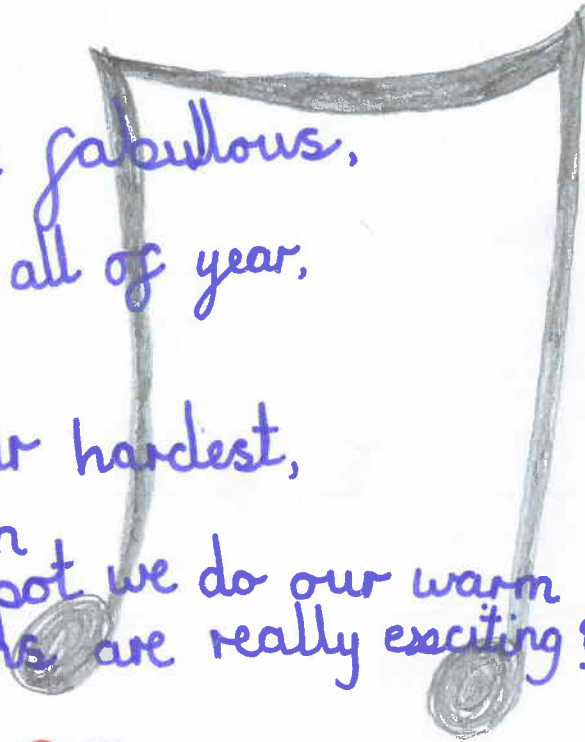 fabullous,
all of year,
hardest,
we do our warm
are really exciting